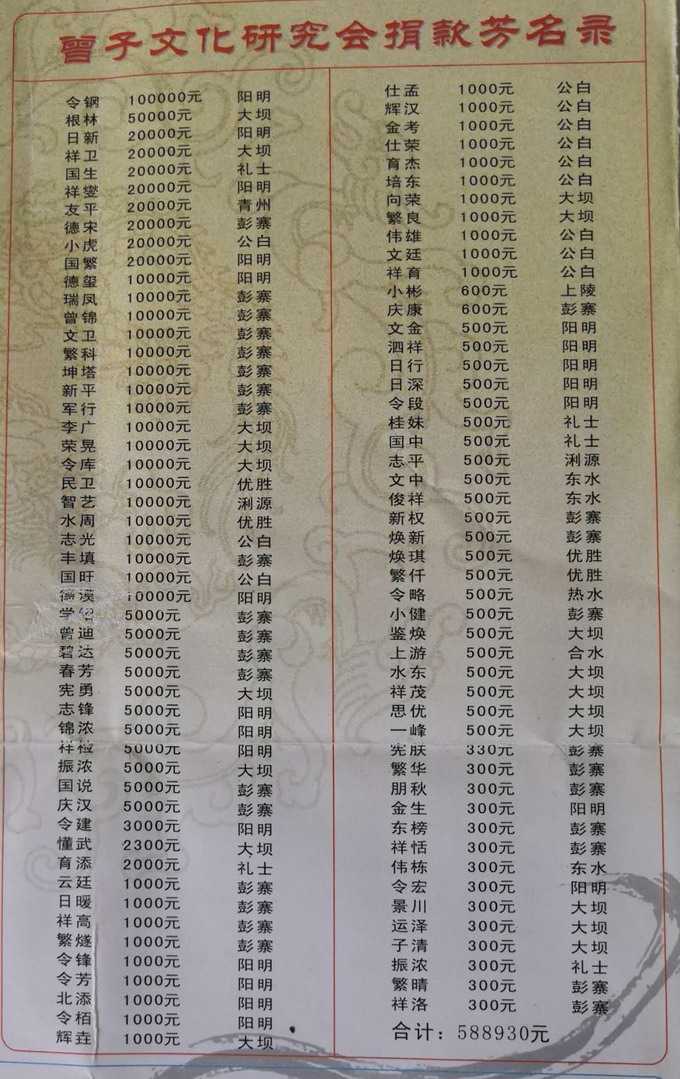 曾子文化研究会捐款芳名录
令钢 100000元 阳明
根林 50000元 大坝
日新 20000元 阳明
祥卫 20000元 大坝
国生 20000元 礼士
祥燮 20000元 阳明
友平 20000元 青州
德宋 20000元 彭寨
小虎 20000元 公白
国繁 20000元 阳明
德玺 10000元 阳明
瑞凤 10000元 彭寨
曾锦 10000元 彭寨
文卫 10000元 彭寨
繁科 10000元 彭寨
坤塔 10000元 彭寨
新平 10000元 彭寨
军行 10000元 彭寨
李广 10000元 大坝
荣晃 10000元 大坝
令库 10000元 大坝
民卫 10000元 优胜
智艺 10000元 浰源
水周 10000元 优胜
志光 10000元 公白
丰填 10000元 彭寨
国旺 10000元 公白
德谟 10000元 阳明
学铭 5000元 彭寨
曾迪 5000元 彭寨
碧达 5000元 彭寨
春芳 5000元 彭寨
宪勇 5000元 大坝
志锋 5000元 阳明
锦浓 5000元 阳明
祥检 5000元 阳明
振浓 5000元 大坝
国说 5000元 彭寨
庆汉 5000元 彭寨
令建 3000元 阳明
懂武 2300元 大坝
育添 2000元 礼士
云廷 1000元 彭寨
日暖 1000元 彭寨
祥高 1000元 彭寨
繁燧 1000元 彭寨
令锋 1000元 阳明
令芳 1000元 阳明
北添 1000元 阳明
令栢 1000元 阳明
辉垚 1000元 大坝
仕孟 1000元 公白
辉汉 1000元 公白
金考 1000元 公白
仕荣 1000元 公白
育杰 1000元 公白
培东 1000元 公白
向荣 1000元 大坝
繁良 1000元 大坝
伟雄 1000元 公白
文廷 1000元 公白
祥育 1000元 公白
小彬 600元 上陵
庆康 600元 彭寨
文金 500元 阳明
泗祥 500元 阳明
日行 500元 阳明
日深 500元 阳明
令段 500元 阳明
桂妹 500元 礼士
国中 500元 礼士
志平 500元 浰源
文中 500元 东水
俊祥 500元 东水
新权 500元 彭寨
焕新 500元 彭寨
焕琪 500元 优胜
繁仟 500元 优胜
令略 500元 热水
小健 500元 彭寨
鉴焕 500元 大坝
上游 500元 合水
水东 500元 大坝
祥茂 500元 大坝
思优 500元 大坝
一峰 500元 大坝
宪朕 330元 彭寨
繁华 300元 彭寨
朋秋 300元 彭寨
金生 300元 阳明
东榜 300元 彭寨
祥恬 300元 彭寨
伟栋 300元 东水
令宏 300元 阳明
景川 300元 大坝
运泽 300元 大坝
子清 300元 大坝
振浓 300元 礼士
繁晴 300元 彭寨
祥洛 300元 彭寨
合计：588930元